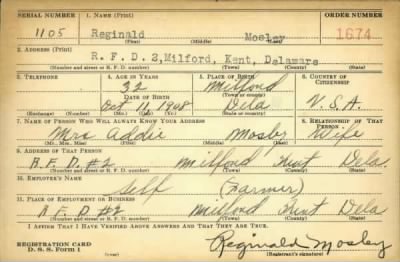 SERIAL NUMBER 1. NAME (Print) ORDER NUMBER
1105 Reginald Mosley 1674
(First) (Middle) (Last)
2. ADDRESS (Print)
R. F. D. 2, Milford, Kent, Delaware
(Number and street or R. F. D. number) (Town) (County) (State)
3. TELEPHONE 4. AGE IN YEARS 5. PLACE OF BIRTH 6. COUNTRY OF CITIZENSHIP
32 Milford
(Town or county)
DATE OF BIRTH
Oct 11, 1908 Dela U.S.A.
(Exchange) (Number) (Mo.) (Day) (Yr.) (State or country)
7. NAME OF PERSON WHO WILL ALWAYS KNOW YOUR ADDRESS 8. RELATIONSHIP OF THAT PERSON
Mrs Addie Mosley Wife
(Mr., Mrs., Miss) (First) (Middle) (Last)
9. ADDRESS OF THAT PERSON
R.F.D. #2 Milford Kent Dela.
(Number and street or R. F. D. number) (Town) (County) (State)
10. EMPLOYER'S NAME
Self (Farmer)
11. PLACE OF EMPLOYMENT OR BUSINESS
R.F.D #2 Milford Kent Dela
(Number and street or R. F. D. number) (Town) (County) (State)
I AFFIRM THAT I HAVE VERIFIED ABOVE ANSWERS AND THAT THEY ARE TRUE.
REGISTRATION CARD
D. S. S. Form 1 Reginald Mosley
(over) (Registrant's signature)